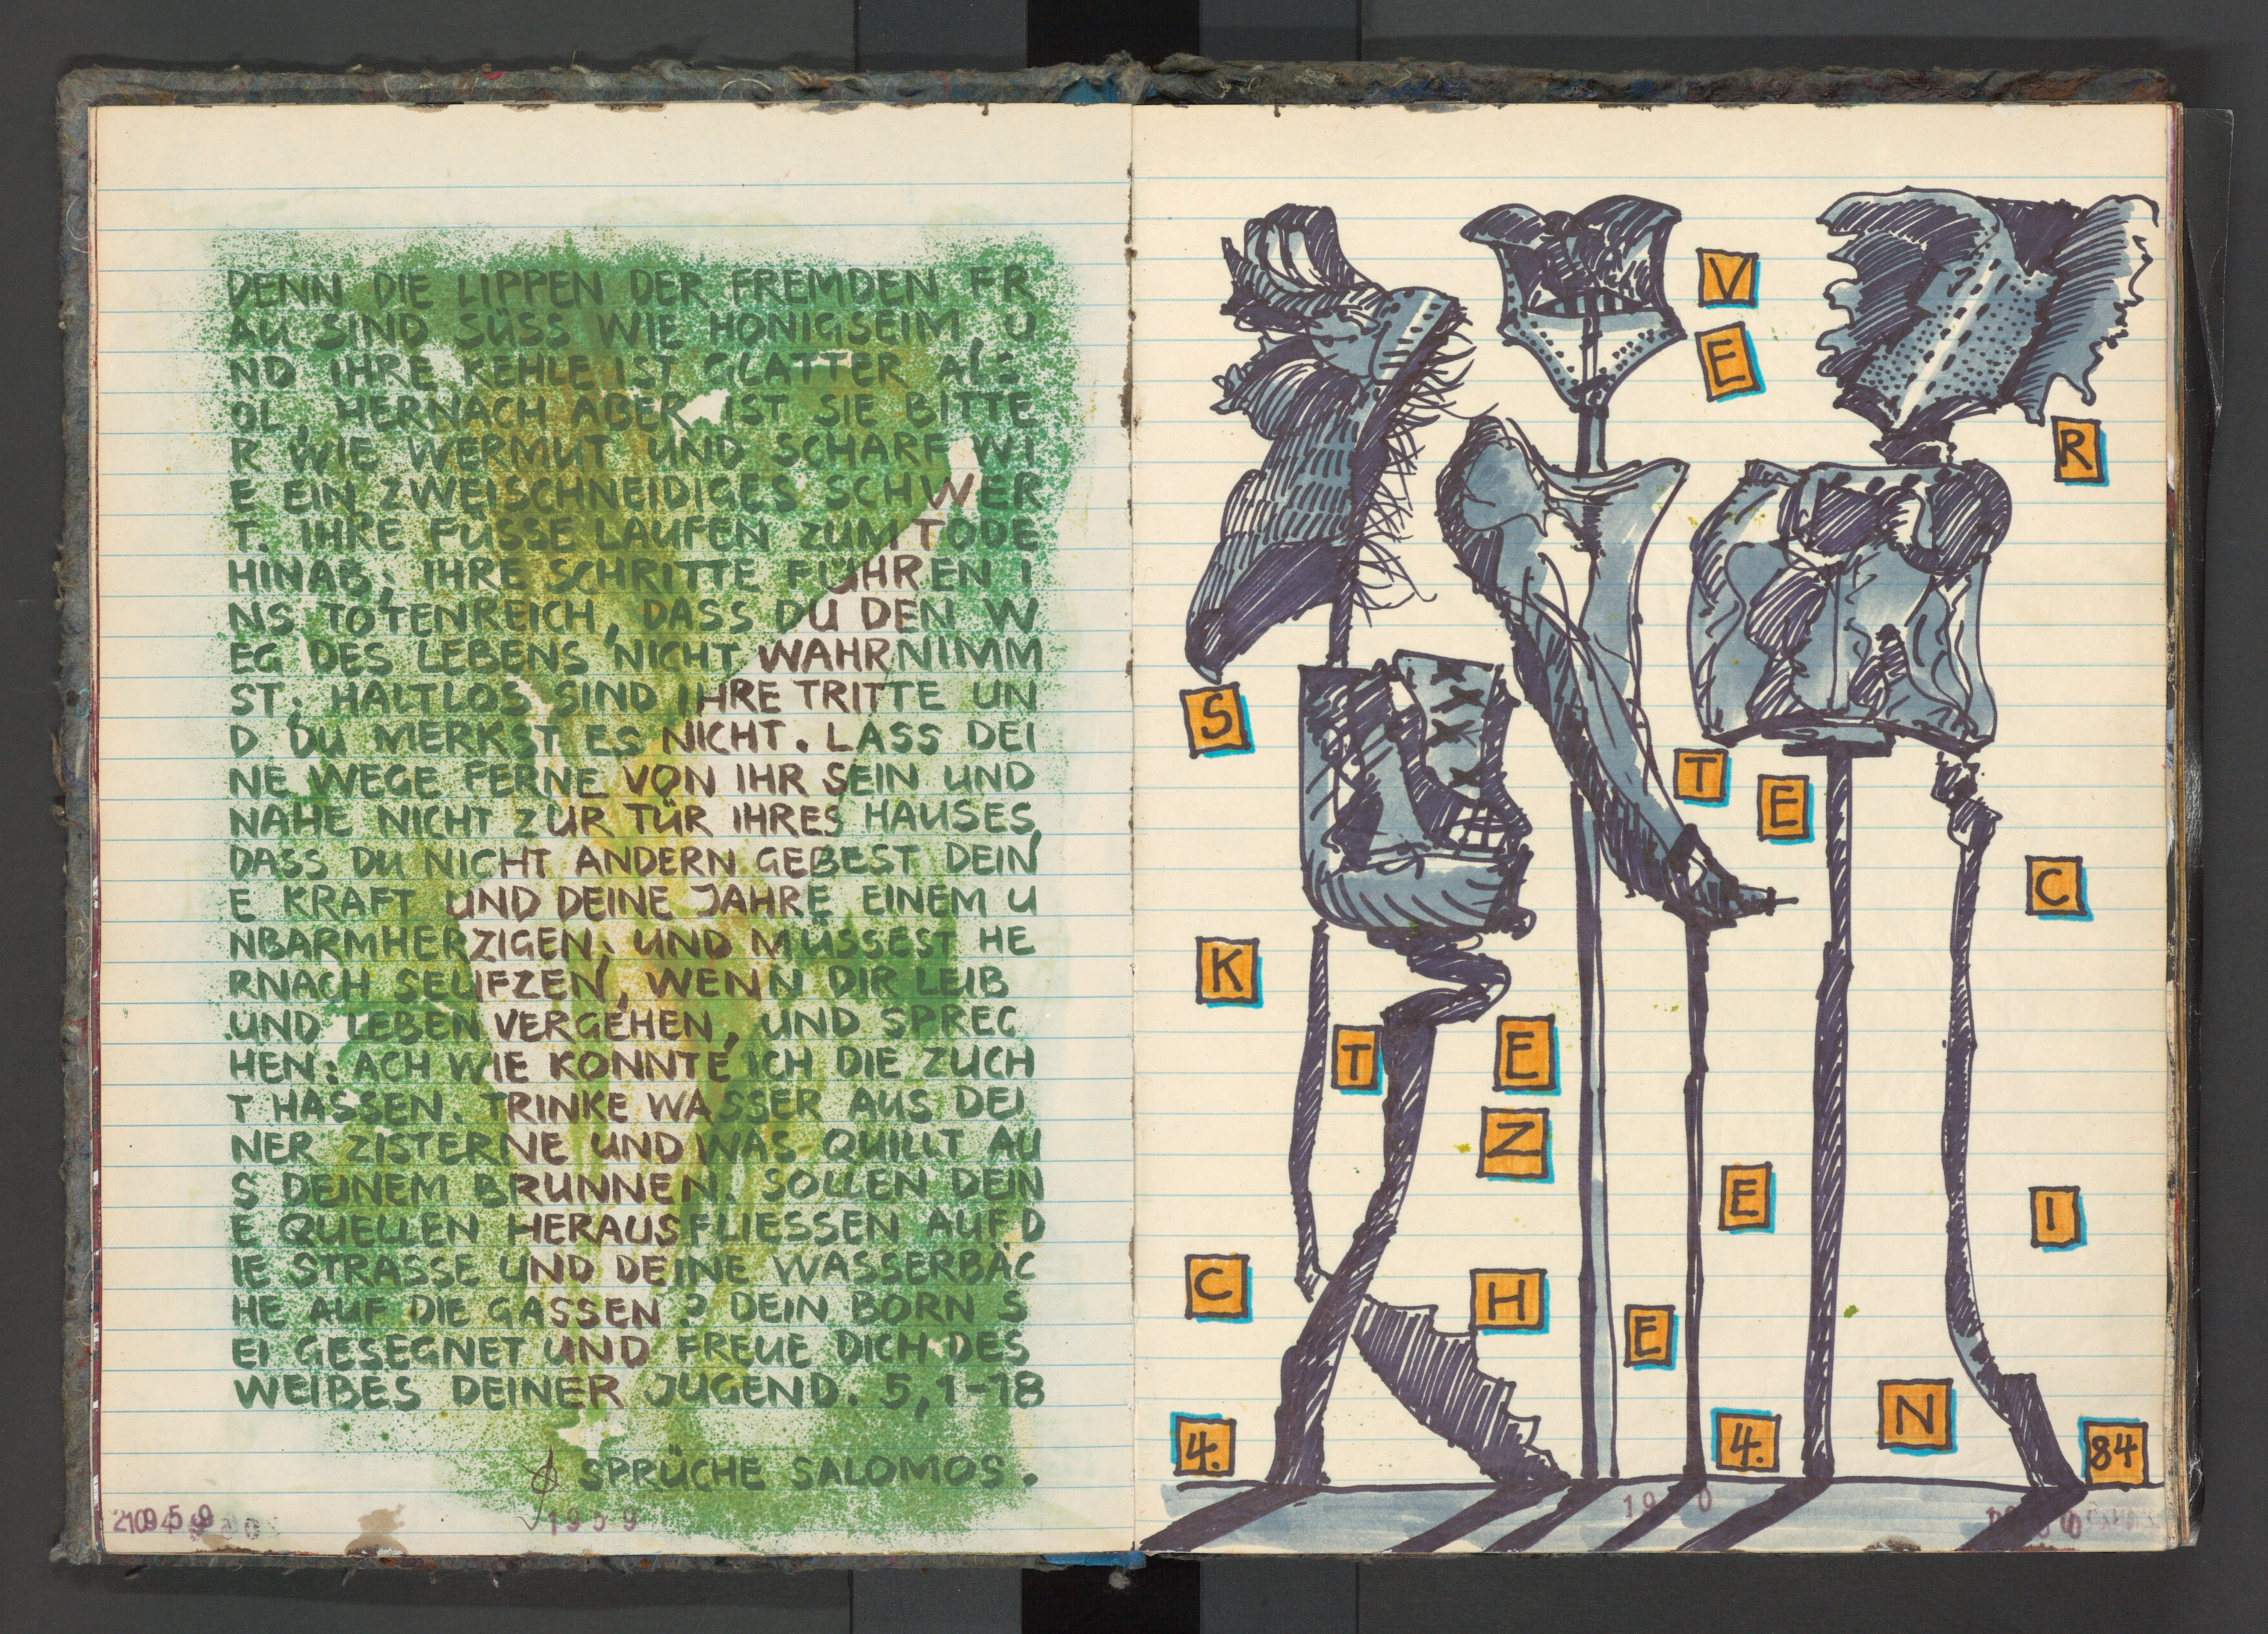 DENN DIE LIPPEN DER FREMDEN FR
AU SIND SÜSS WIE HONIGSEIM, U
ND IHRE KEHLE IST GLATTER ALS
ÖL, HERNACH ABER IST SIE BITTE
R WIE WERMUT UND SCHARF WI
E EIN ZWEISCHNEIDIGES SCHWER
T. IHRE FÜSSE LAUFEN ZUM TODE
HINAB; IHRE SCHRITTE FÜHREN I
NS TOTENREICH, DASS DU DEN W
EG DES LEBENS NICHT WAHRNIMM
ST; HALTLOS SIND IHRE TRITTE UN
D DU MERKST ES NICHT. LASS DEI
NE WEGE FERNE VON IHR SEIN UND
NAHE NICHT ZUR TÜR IHRES HAUSES,
DASS DU NICHT ANDERN GEBEST DEIN
E KRAFT UND DEINE JAHRE EINEM U
NBARMHERZIGEN; UND MÜSSEST HE
RNACH SEUFZEN, WENN DIR LEIB
UND LEBEN VERGEHEN, UND SPREC
HEN: ACH WIE KONNTE ICH DIE ZUCH
T HASSEN. TRINKE WASSER AUS DEI
NER ZISTERNE UND WAS QUILLT AU
S DEINEM BRUNNEN. SOLLEN DEIN
E QUELLEN HERAUSFLIESSEN AUF D
IE STRASSE UND DEINE WASSERBÄC
HE AUF DIE GASSEN? DEIN BORN S
EI GESEGNET UND FREUE DICH DES
WEIBES DEINER JUGEND. 5,1-18
SPRÜCHE SALOMOS.
1959
V
E
R
S
T
E
C
K
T
E
Z
E
I
C
H
E
N
4.
4.
84